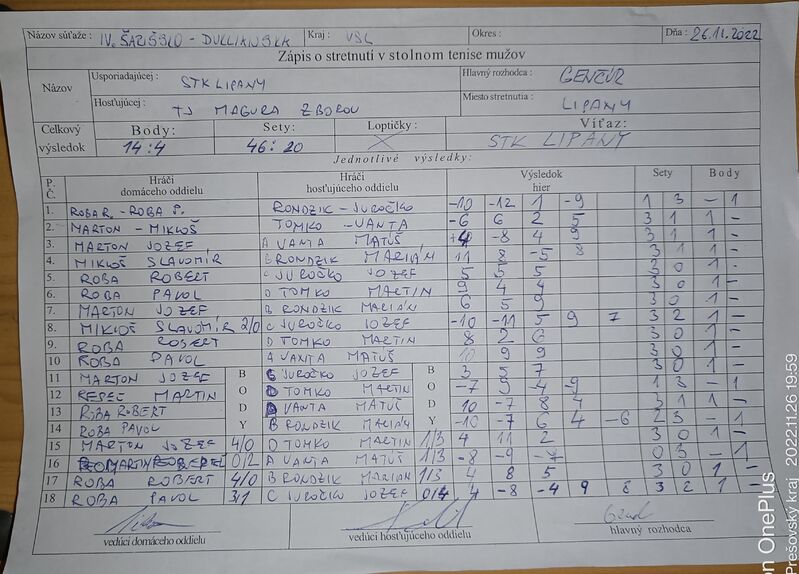 Názov súťaže : IV. ŠARIŠSKO - DUKLIANSKA Kraj : VSL Okres : Dňa : 26.11.2022
Zápis o stretnutí v stolnom tenise mužov
Názov Usporiadajúcej : STK LIPANY Hlavný rozhodca : GENČÚR
Hosťujúcej : TJ MAGURA ZBOROV Miesto stretnutia : LIPANY
Celkový výsledok Body : Sety : Loptičky : Víťaz :
14:4 46:20 X STK LIPANY
Jednotlivé výsledky :
P. Č. Hráči domáceho oddielu Hráči hosťujúceho oddielu Výsledok hier Sety Body
1. ROBA R. - ROBA P. RONDZIK - JUROČKO -10 -12 1 -9 1 3 - 1
2. MARTON - MIKLOŠ TOMKO - VANTA -6 6 2 5 3 1 1 -
3. MARTON JOZEF A VANTA MATÚŠ 4 -8 4 9 3 1 1 -
4. MIKLOŠ SLAVOMÍR B RONDZIK MARIÁN 11 8 -5 8 3 1 1 -
5. ROBA ROBERT C JUROČKO JOZEF 5 5 5 3 0 1 -
6. ROBA PAVOL D TOMKO MARTIN 9 4 4 3 0 1 -
7. MARTON JOZEF B RONDZIK MARIÁN 6 5 9 3 0 1 -
8. MIKLOŠ SLAVOMÍR 2/0 C JUROČKO JOZEF -10 -11 5 9 7 3 2 1 -
9. ROBA ROBERT D TOMKO MARTIN 8 2 6 3 0 1 -
10 ROBA PAVOL A VANTA MATÚŠ 10 9 9 3 0 1 -
11 MARTON JOZEF B C JUROČKO JOZEF B 3 5 7 3 0 1 -
12 REPEL MARTIN O D TOMKO MARTIN O -7 9 -4 -9 1 3 - 1
13 ROBA ROBERT D VANTA MATÚŠ D 10 -7 8 4 3 1 1 -
14 ROBA PAVOL Y B RONDZIK MARIÁN Y -10 -7 6 4 -6 2 3 - 1
15 MARTON JOZEF 4/0 D TOMKO MARTIN 1/3 4 11 2 3 0 1 -
16 MARTIN 0/2 A VANTA MATÚŠ 1/3 -8 -9 -7 0 3 - 1
17 ROBA ROBERT 4/0 B RONDZIK MARIAN 1/3 4 8 5 3 0 1 -
18 ROBA PAVOL 3/1 C JUROČKO JOZEF 0/4 4 -8 -4 9 8 3 2 1 -
vedúci domáceho oddielu vedúci hosťujúceho oddielu hlavný rozhodca
on OnePlus
Prešovský kraj 2022.11.26 19:59